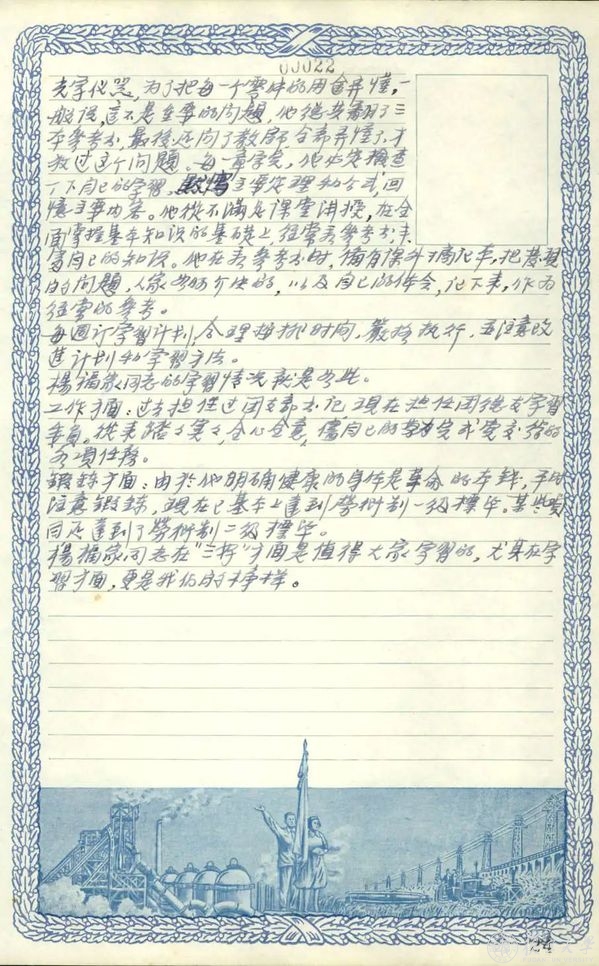 00022
光学仪器，为了把每一个零件的用途弄懂，一
般说，这不是主要的问题，他继共看了三
本参考书，最後还问了教师，全部弄懂了，才
放过这个问题。每一章学完，他必定检查
一下自己的学习，默写主要定理和公式，回
憶主要内容。他從不满足课堂讲授，在全
面掌握基本知识的基礎上，经常看参考书，丰
富自己的知识。他在看参考书时，備有课外摘记本，把
的问题，人家如何介决的，以及自己的体会，记下来，作为
经常的参考。
每週订学習计划，合理安排时间，嚴格执行，并注意改
進计划和学習方法。
楊福家同志的学習情况就是如此。
工作方面：过去担任过团支部书记，现在担任团总支学習
委員。從来踏踏实实，全心全意，儘自己的努力完成党交给的
各項任務。
鍛鍊方面：由於他明确健康的身体是革命的本錢，平时
注意鍛鍊，现在已基本上達到勞衛制一级標準。某些項
目还達到了勞衛制二级標準。
楊福家同志在“三好”方面是值得大家学習的，尤其在学
習方面，更是我们的榜样。
24